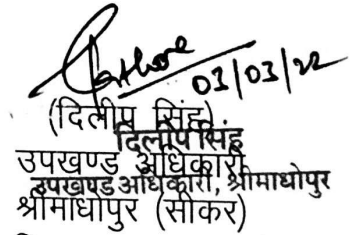 Rathore
03/03/22
(दिलीप सिंह)
दिलीप सिंह
उपखण्ड अधिकारी
उपखण्ड अधिकारी, श्रीमाधोपुर
श्रीमाधोपुर (सीकर)